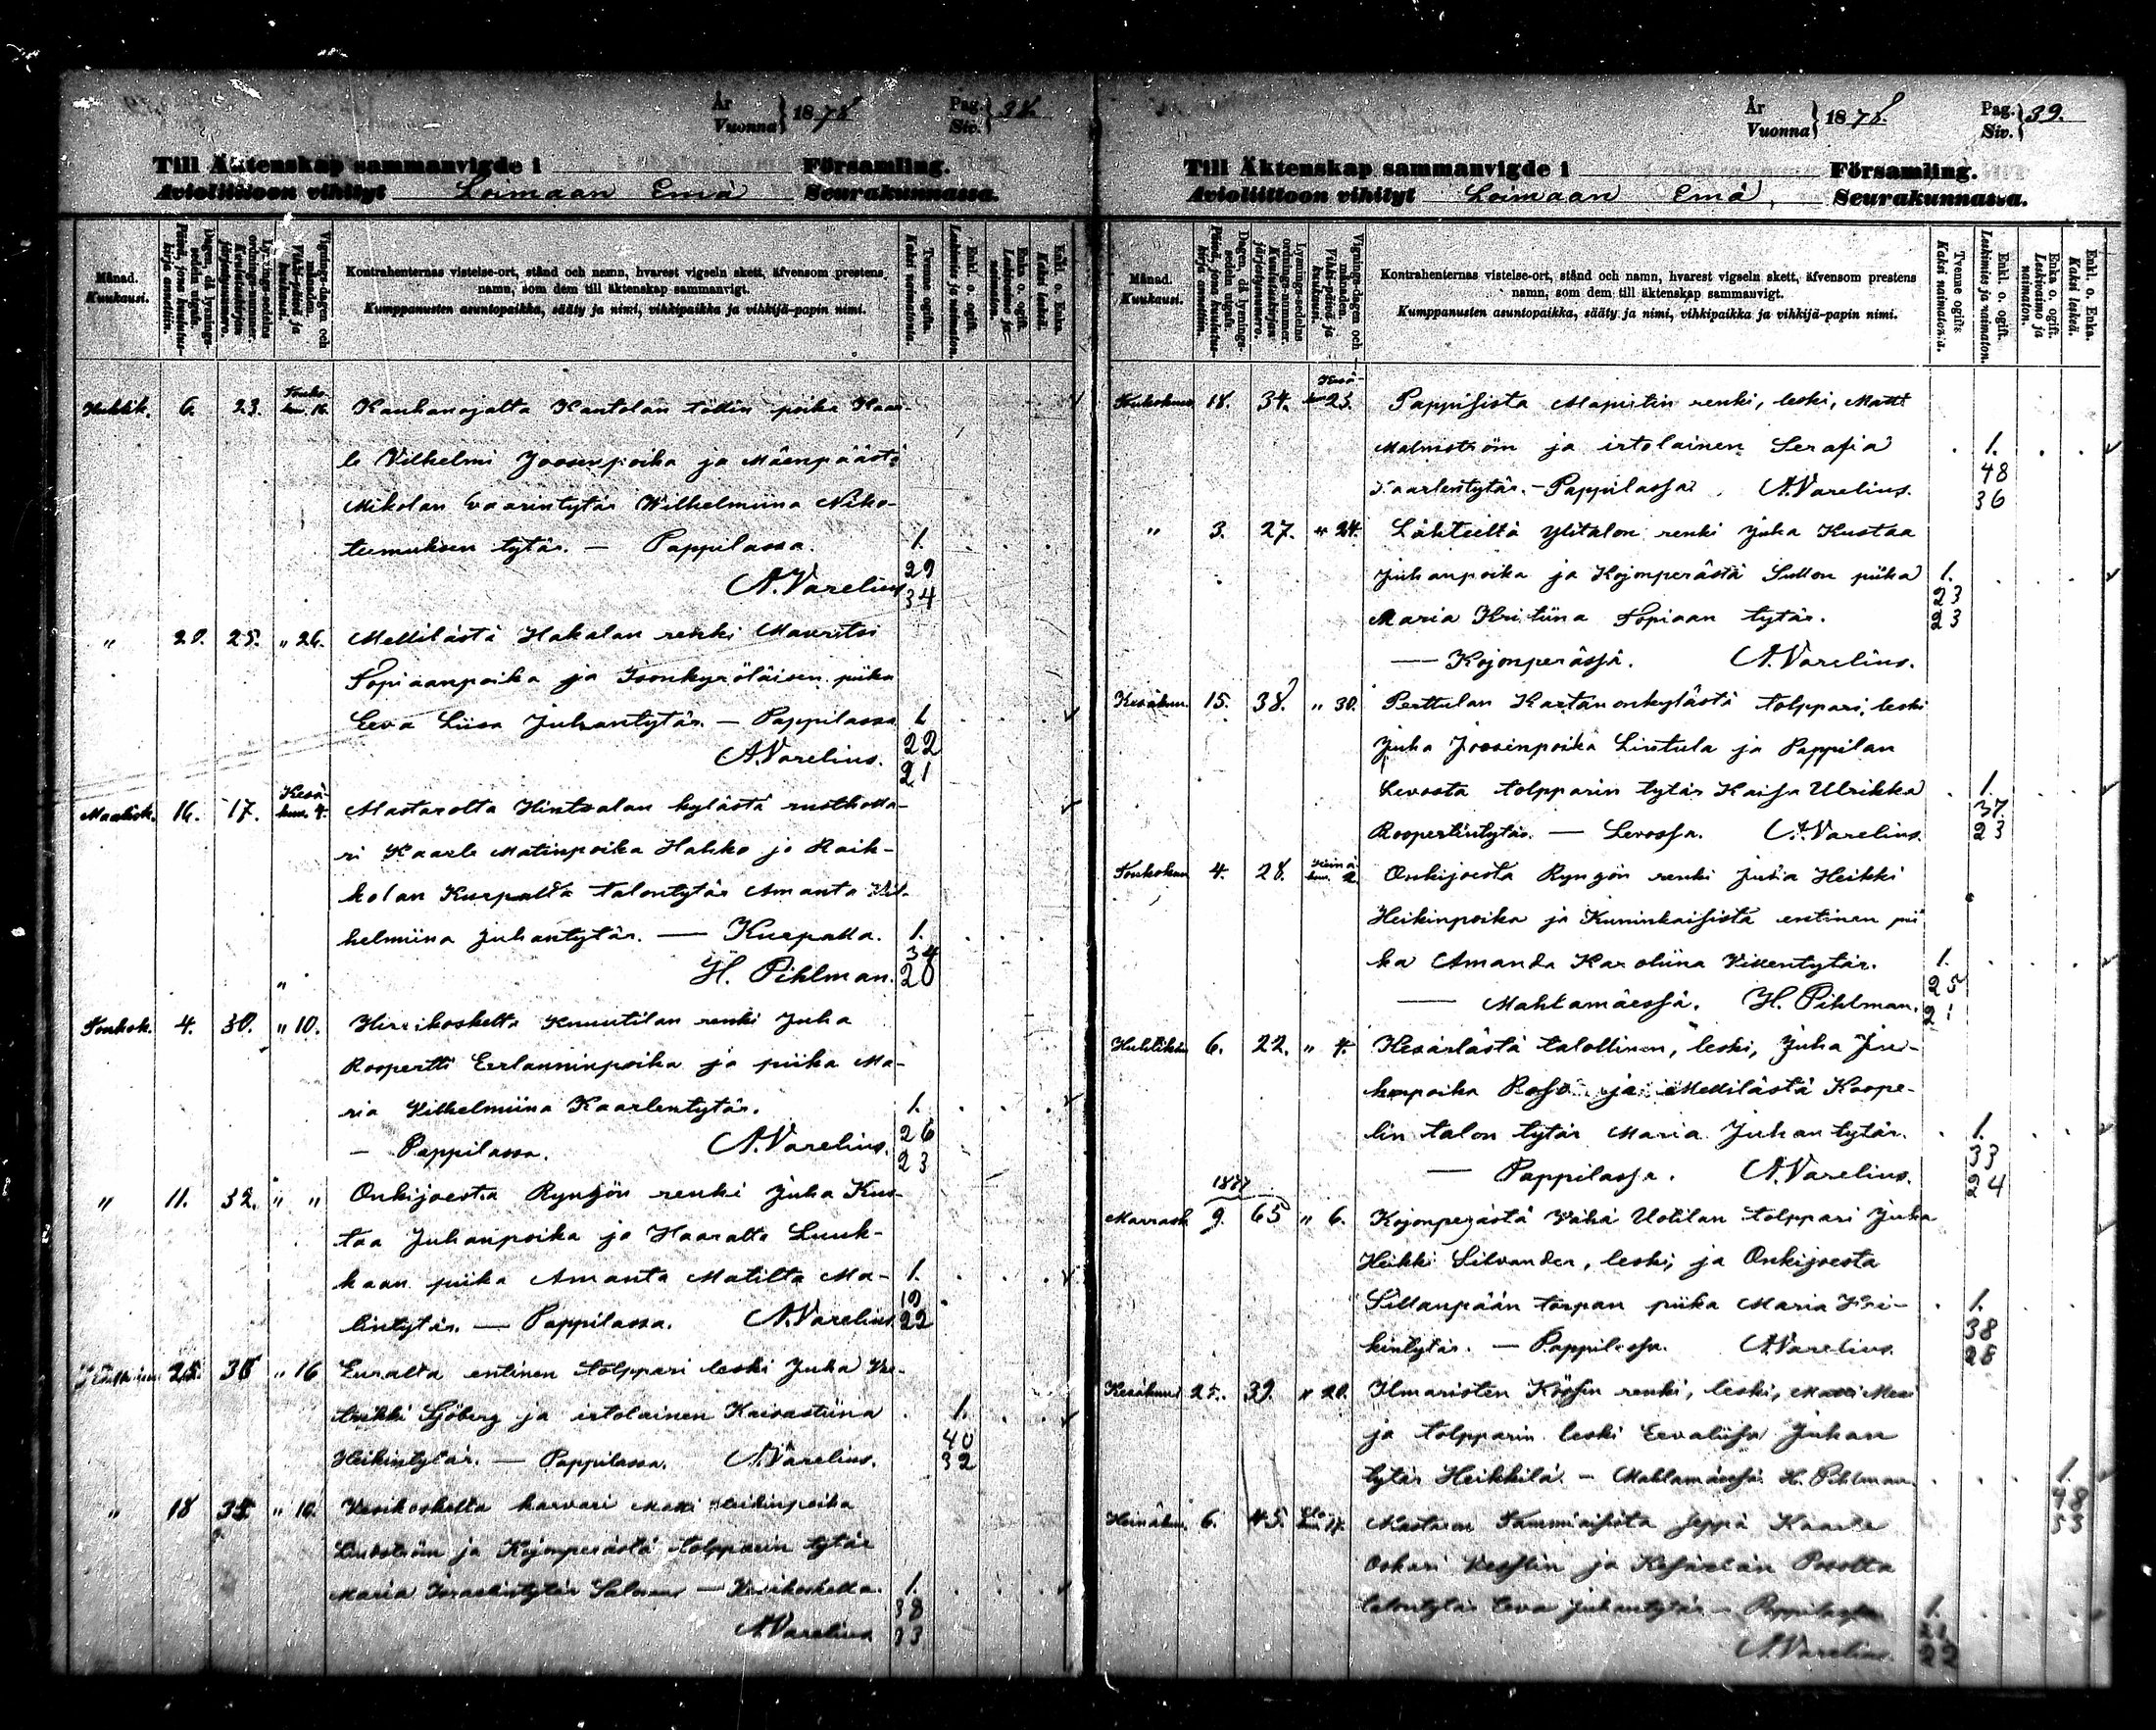 År
Vuonna } 1878 Pag.
Siv. } 38.
Till Äktenskap sammanvigde i Församling.
Avioliittoon vihityt Loimaan Emä Seurakunnassa.
Månad.
Kuukausi.
Dagen, då lysningssedeln utgafs.
Päivä, jona kuulutuskirja annettiin.
Lysnings-sedelns ordnings-nummer.
Kuulutuskirjan järjestysnumero.
Vignings-dagen och månaden.
Vihki-päivä ja kuukausi.
Kontrahenternas vistelse-ort, stånd och namn, hvarest vigseln skett, äfvensom prestens
namn, som dem till äktenskap sammanvigt.
Kumppanusten asuntopaikka, sääty ja nimi, vihkipaikka ja vihkijä-papin nimi.
Tvenne ogifta.
Kaksi naimatonta.
Enkl. o. ogift.
Leskimies ja naimaton.
Enka o. ogift.
Leskivaimo ja naimaton.
Enkl. o. Enka.
Kaksi leskeä.
Huhtik. 6. 23. Touko-
kuu 16. Kauhanojalta Kantolan töllin poika Kaar-
le Vilhelmi Joosenpoika ja Mäenpäästä
Mikolan vaarintytär Wilhelmiina Niko-
teemuksen tytär. — Pappilassa. 1.
A. Varelius 29
34
" 20. 25. " 26. Mellilästä Hakalan renki Mauritsi
Sopiaanpoika ja Isonkyröläisen piika
Eeva Liisa Juhantytär. — Pappilassa 1.
A. Varelius. 22
21
Maalisk. 16. 17. Kesä-
kuu. 4. Mastarolta Hintsalan kylästä rustholla-
ri Kaarle Matinpoika Hakko ja Raik-
kolan Kurpalta talontytär Amanta Vil-
helmiina Juhantytär. — Kurpalla. 1.
H. Pihlman. 34
20
Toukok. 4. 30. " 10. Hirvikoskelta Knuutilan renki Juha
Roopertti Eerlanninpoika ja piika Ma-
ria Vilhelmiina Kaarlentytär. 1.
— Pappilassa. A. Varelius. 26
23
" 11. 32. " " Onkijoesta Ryngön renki Juha Kus-
taa Juhanpoika ja Haaralta Luuk-
kaan piika Amanta Matilta Ma- 1.
lintytär. — Pappilassa. A. Varelius. 19
22
25. " 16 Euralta entinen tolppari leski Juha Vre-
trikki Sjöberg ja irtolainen Kaisastiina 1.
Heikintytär. — Pappilassa. A. Varelius. 40
32
" 18 " 16. Vesikoskelta karvari Matti Heikinpoika
Lindström ja Kojonperästä tolpparin tytär
Maria Israelintytär — 1.
A. Varelius
År
Vuonna } 1878. Pag.
Siv. } 39.
Till Äktenskap sammanvigde i Församling.
Avioliittoon vihityt Loimaan Emä, Seurakunnassa.
Månad.
Kuukausi.
Dagen, då lysnings-sedeln utgafs.
Päivä, jona kuulutuskirja annettiin.
Lysnings-sedelns ordnings-nummer.
Kuulutuskirjan järjestysnumero.
Vignings-dagen och månaden.
Vihki-päivä ja kuukausi.
Kontrahenternas vistelse-ort, stånd och namn, hvarest vigseln skett, äfvensom prestens
namn, som dem till äktenskap sammanvigt.
Kumppanusten asuntopaikka, sääty ja nimi, vihkipaikka ja vihkijä-papin nimi.
Tvenne ogifta.
Kaksi naimatonta.
Enkl. o. ogift.
Leskimies ja naimaton.
Enka o. ogift.
Leskivaimo ja naimaton.
Enkl. o. Enka.
Kaksi leskeä.
Toukokuu 18. 34. Kesä-
kuu 23. Pappisista Mapistin renki, leski, Matti
Malmström ja irtolainen Serafia 1.
Kaarlentytär. — Pappilassa. A. Varelius. 48
36
" 3. 27. " 24. Lähteeltä Ylitalon renki Juha Kustaa
Juhanpoika ja Kojonperästä Sullon piika 1.
Maria Kristiina Sopiaan tytär. 23
23
— Kojonperässä. A. Varelius.
Kesäkuu. 15. 38. " 30. Perttulan Kartanonkylästä tolppari, leski
Juha Joosenpoika Lintula ja Pappilan
Levosta tolpparin tytär Kaisa Ulrikka 1.
Roopertintytär. — Levossa. A. Varelius. 37.
23
Toukokuu 4. 28. Heinä-
kuu. 2. Onkijoesta Ryngön renki Juha Heikki
Heikinpoika ja Kuninkaisista entinen pii-
ka Amanda Karoliina Villentytär. 1.
— Mahlamäessä. H. Pihlman. 25
21
Huhtikuu 6. 22. " 4. Kesärlästä talollinen, leski, Juha
poika ja Mellilästä Koope-
lin talon tytär Maria Juhan tytär. 1.
— Pappilassa. A. Varelius. 33
24
1877
Marrask. 9. 65 " 6. Kojonperästä Vähä Uotilan tolppari Juha
Heikki Silvander, leski, ja Onkijoesta
Sillanpään torpan piika Maria Hei- 1.
kintytär. — Pappilassa. A. Varelius. 38
28
Kesäkuu 25. 39. " 20. Ilmaristen renki, leski, Matti
ja tolpparin leski Eevaliisa Juhan
tytär Heikkilä. — Mahlamäessä. H. Pihlman. 1.
48
53
Heinäkuu. 6. 45. seppä Kaarle
Oskari ja
talontytär Eeva Juhantytär — Pappilassa 1.
A. Varelius. 21
22